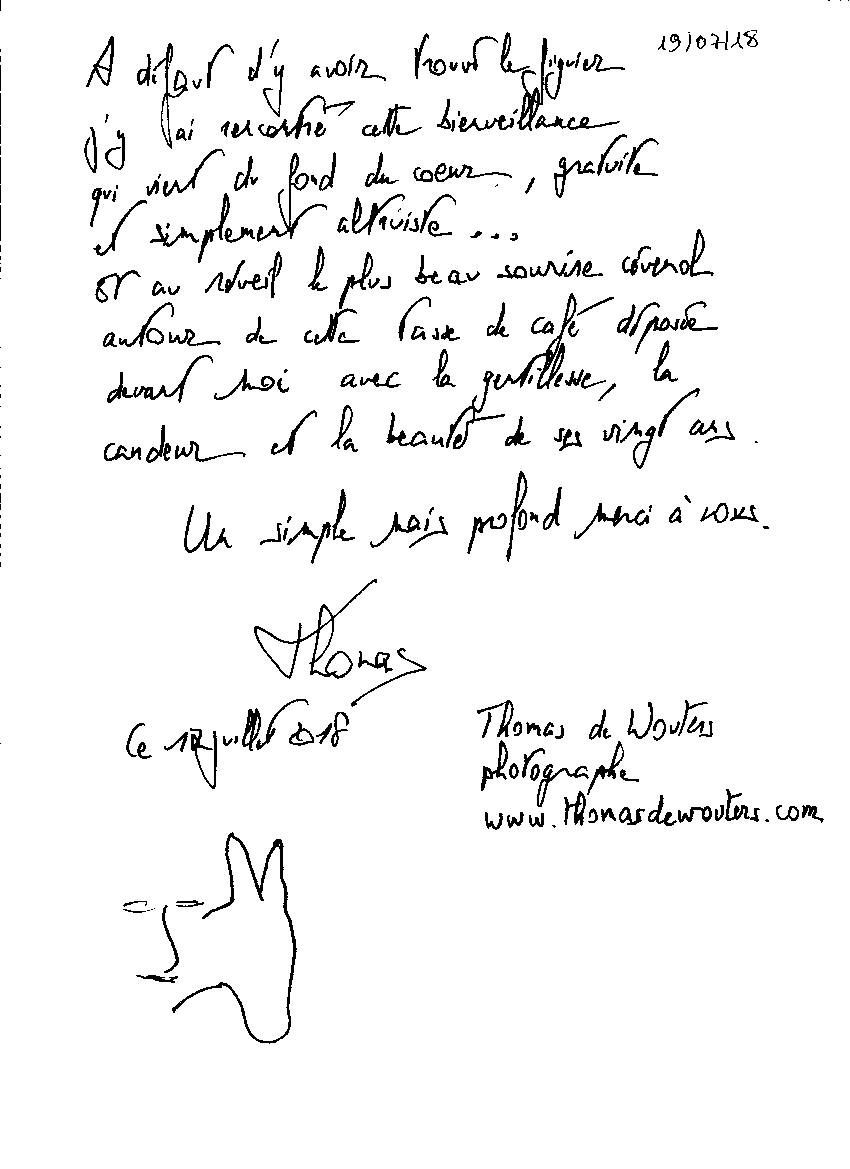 19/07/18
A défaut d'y avoir trouvé le figuier
j'y ai rencontré cette bienveillance
qui vient du fond du coeur, gratuite
et simplement altruiste...
et au réveil le plus beau sourire cévenol
autour de cette tasse de café déposée
devant moi avec la gentillesse, la
candeur et la beauté de ses vingt ans.
Un simple mais profond merci à vous.
Thomas
Ce juillet 2018
Thomas de Wouters
photographe
www.thomasdewouters.com